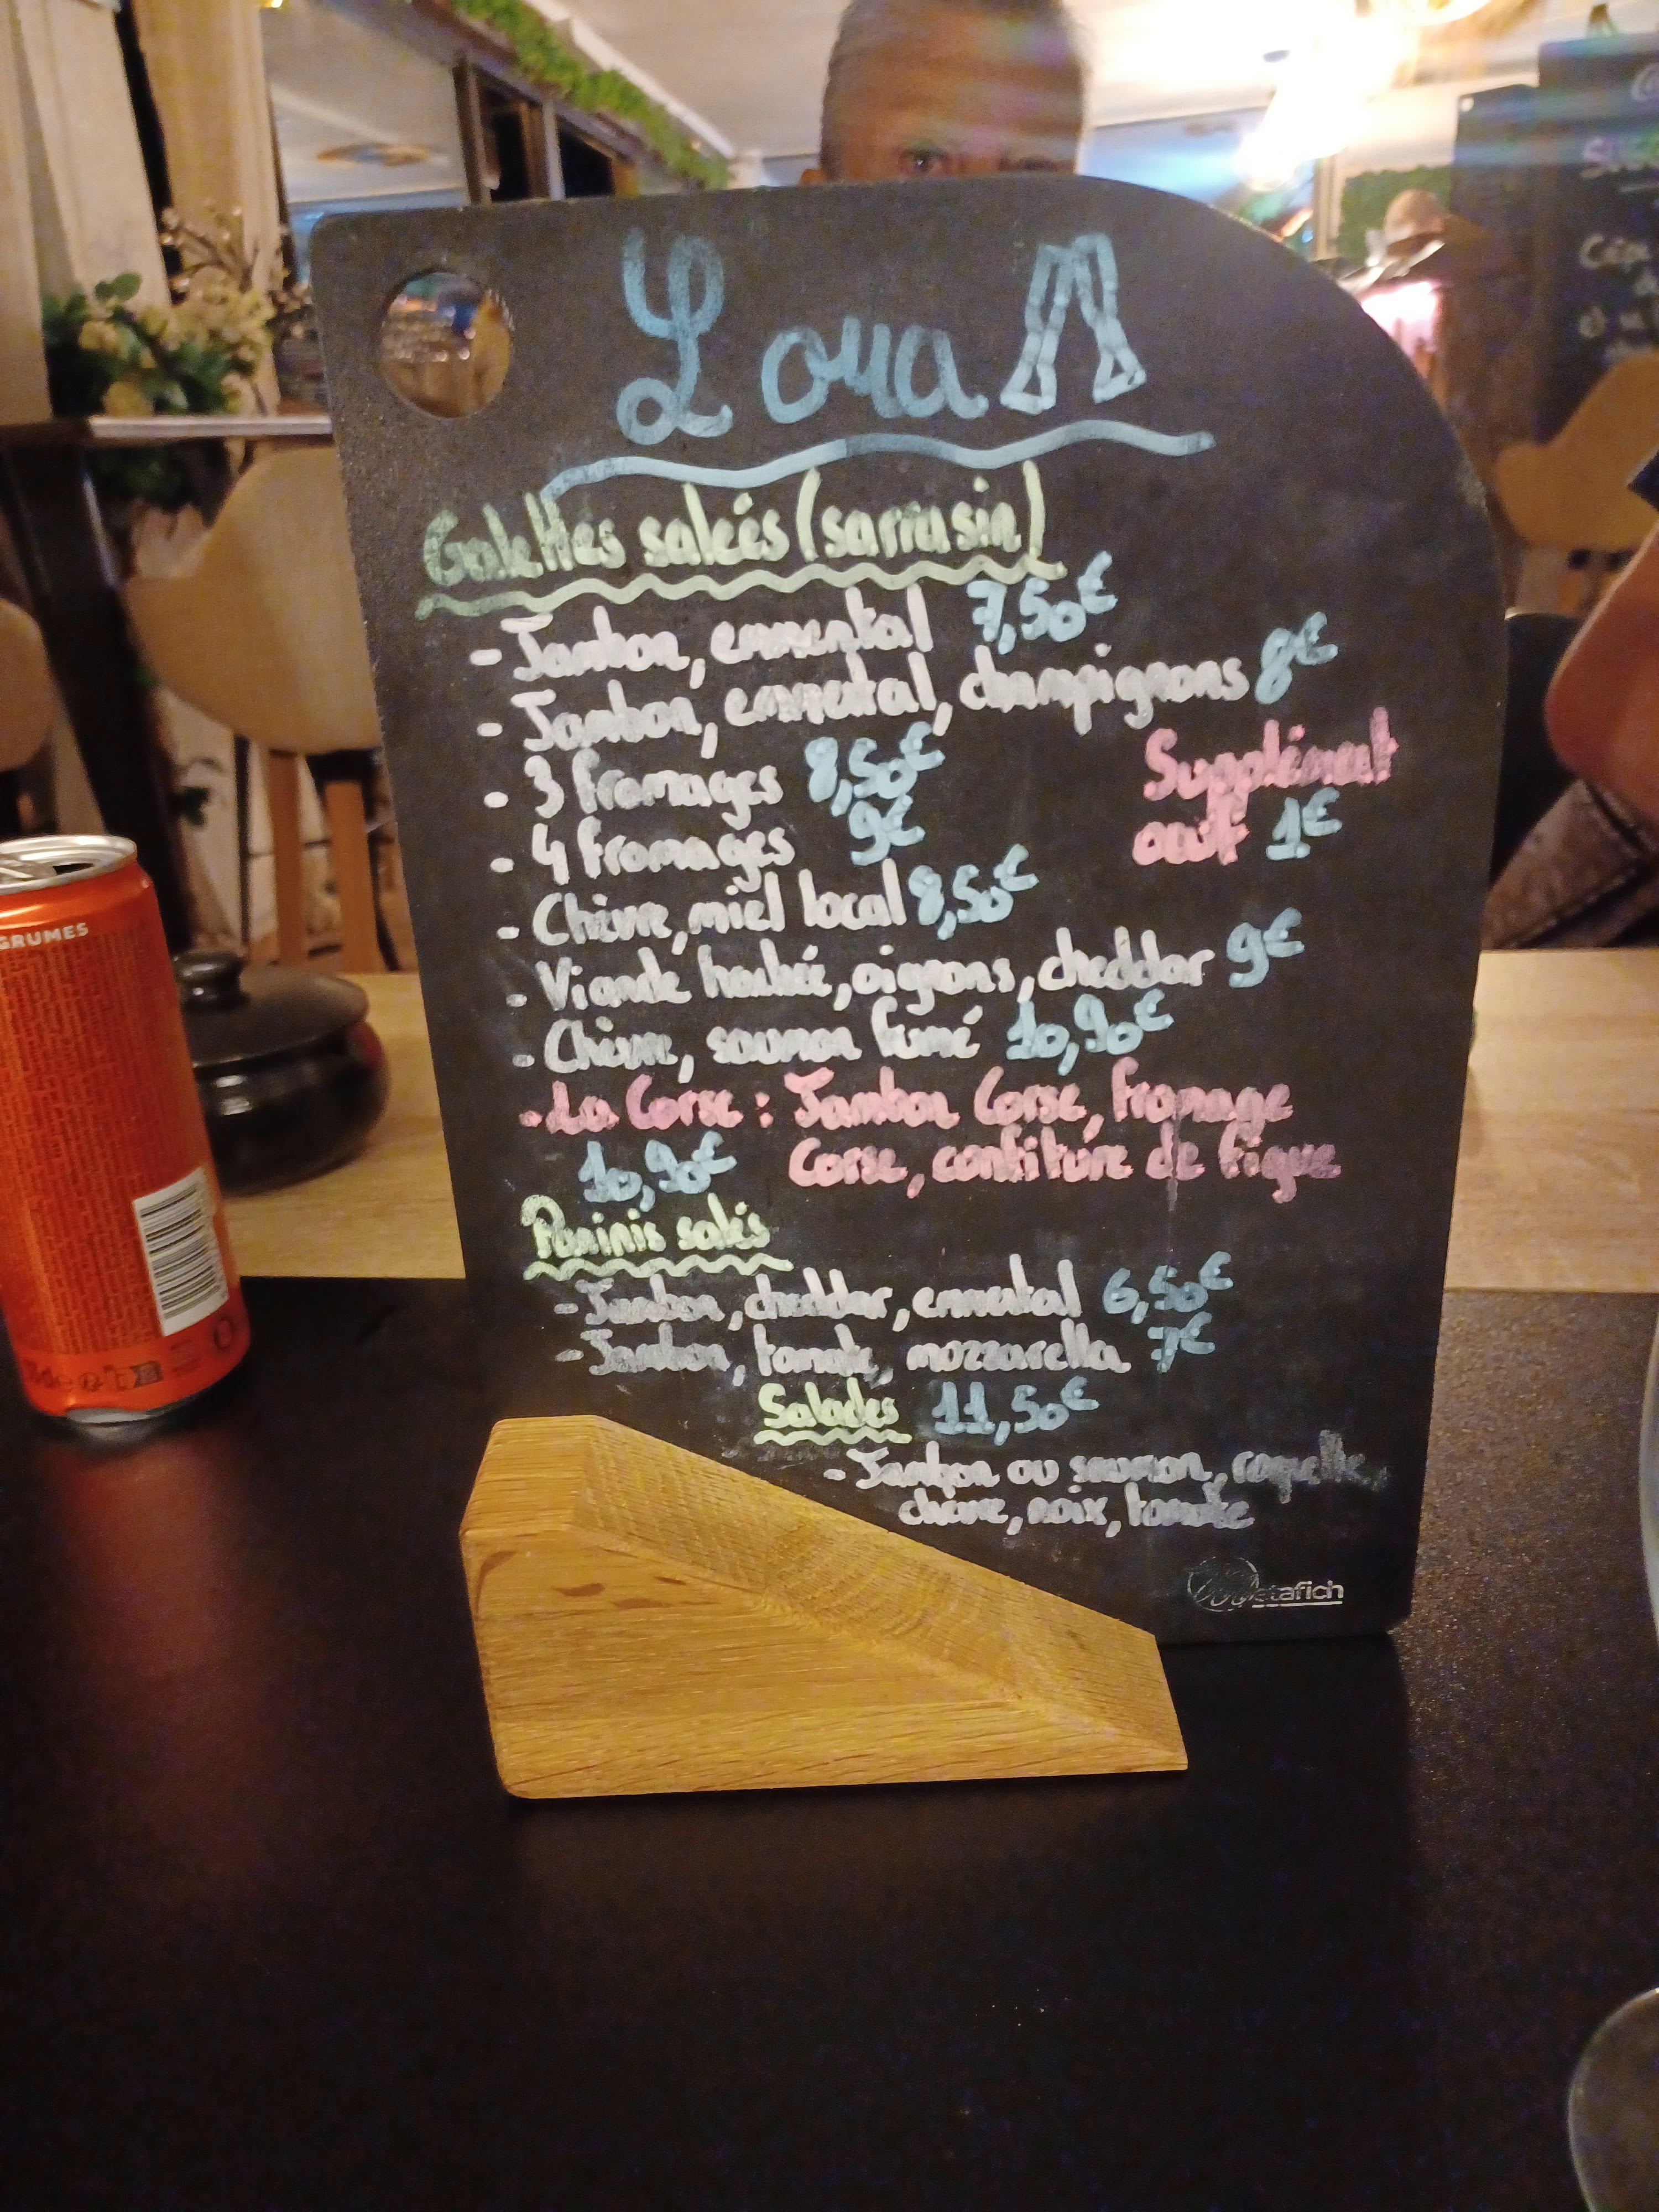 Loua
Galettes saleés (sarrasin)
- Jambon, emmental 7,50€
- Jambon, emmental, champignons 8€
- 3 fromages 8,50€
Supplément
- 4 fromages 9€
œuf 1€
- Chèvre, miel local 8,50€
- Viande hachée, oignons, cheddar 9€
- Chèvre, saumon fumé 10,90€
- La Corse : Jambon Corse, fromage
10,90€ Corse, confiture de figue
Paninis salés
- Jambon, cheddar, emmental 6,50€
- Jambon, tomate, mozzarella 7€
Salades 11,50€
- Jambon ou saumon, roquette,
chèvre, noix, tomate
GRUMES